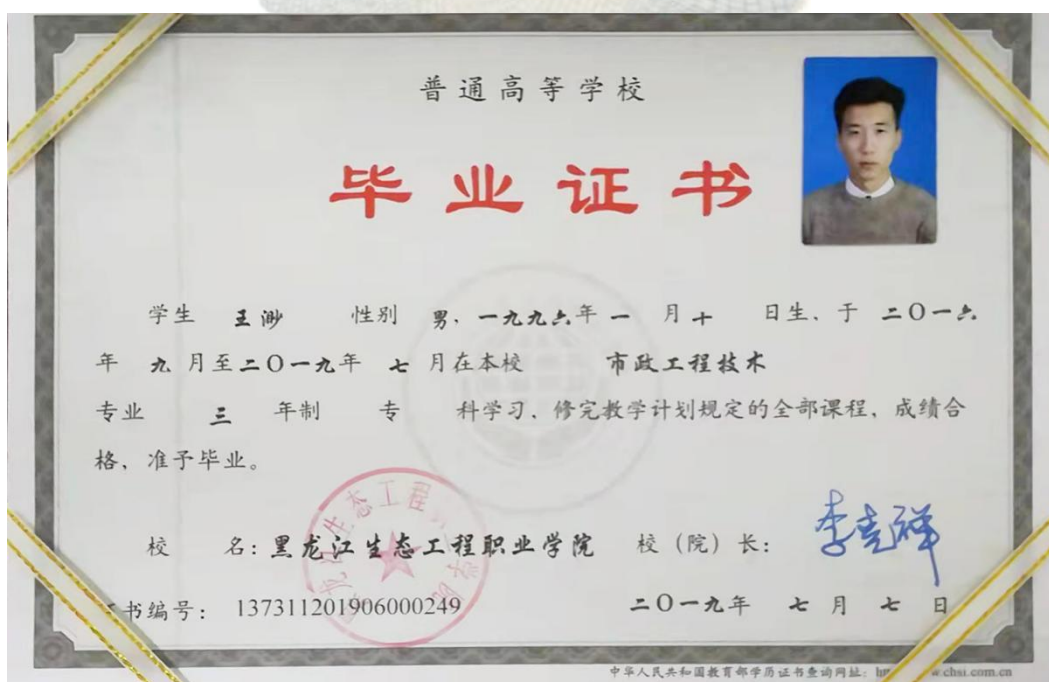 普通高等学校
毕业证书
学生 王渺 性别 男，一九九六年 一 月 十 日生，于 二〇一六
年 九 月至二〇一九年 七 月在本校 市政工程技术
专业 三 年制 专 科学习，修完教学计划规定的全部课程，成绩合
格，准予毕业。
校 名：黑龙江生态工程职业学院 校（院）长： 李克祥
书编号： 137311201906000249 二〇一九年 七 月 七 日
中华人民共和国教育部学历证书查询网址： chsi.com.cn